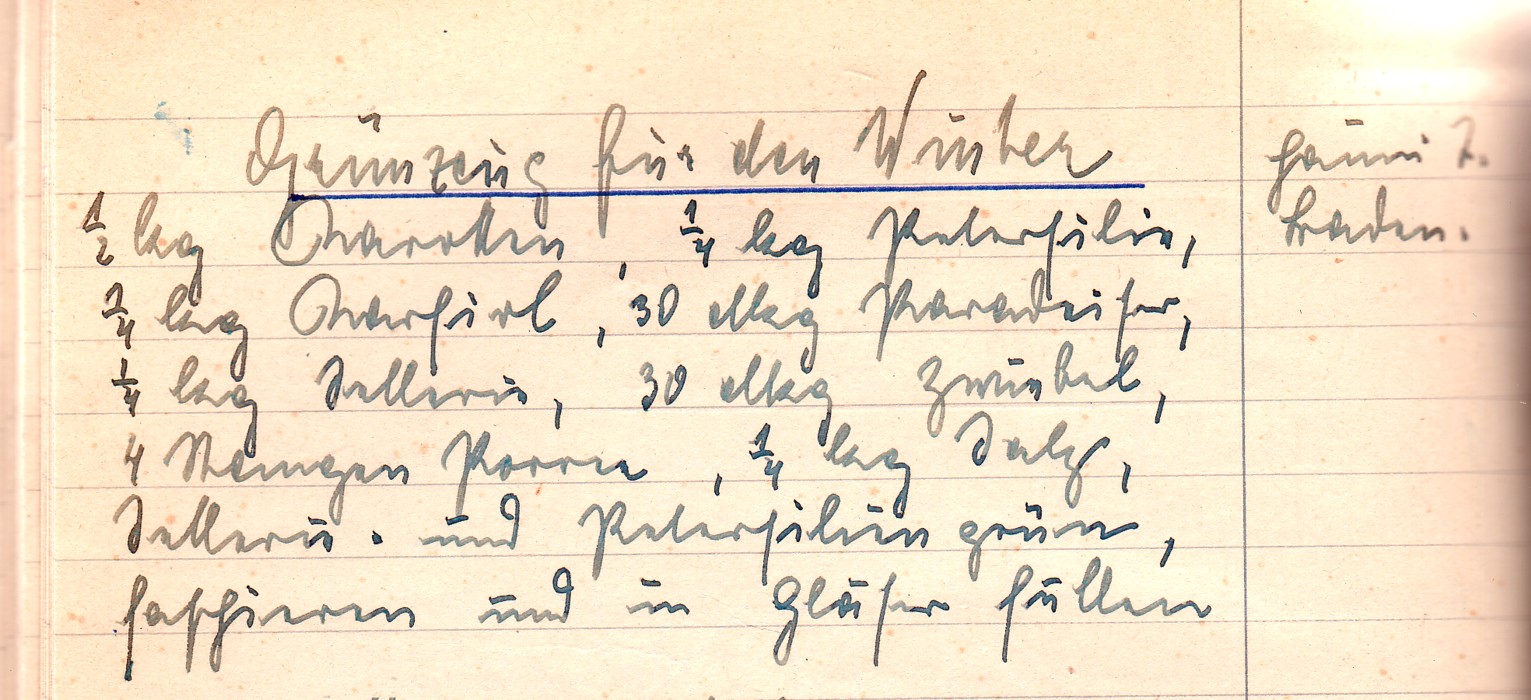 Grünzeug für den Winter
Baden.
½ kg Karotten, ¼ kg Petersilie,
¼ kg Karfiol, 30 dkg Paradeiser,
¼ kg Sellerie, 30 dkg Zwiebel,
4 Stangen Porree, ¼ kg Salz,
Sellerie- und Petersiliengrün,
faschieren und in Gläser füllen